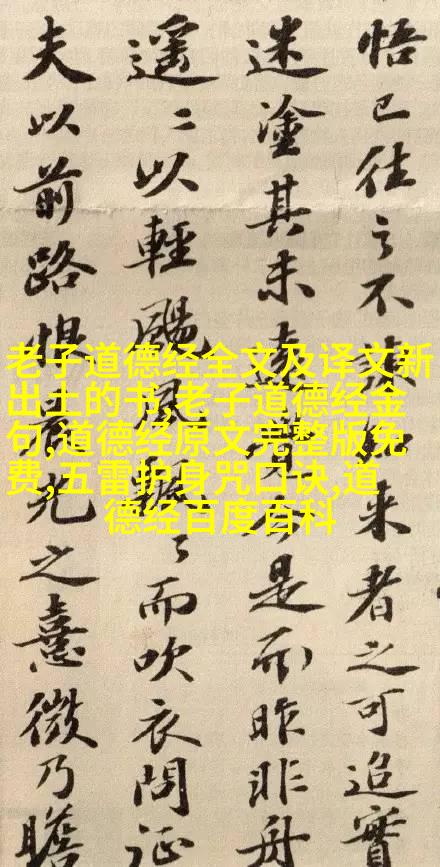 悟已往之不諫知来者之可追實
迷塗其未遠覺今是而昨非舟
遥〻以輕颺風飄〻而吹衣問征
夫以前路恨晨光之熹微乃瞻
老子道德经全文及译文新
出土的书,老子道德经金
句,道德经原文完整版免
费,五雷护身咒口诀,道
德经百度百科